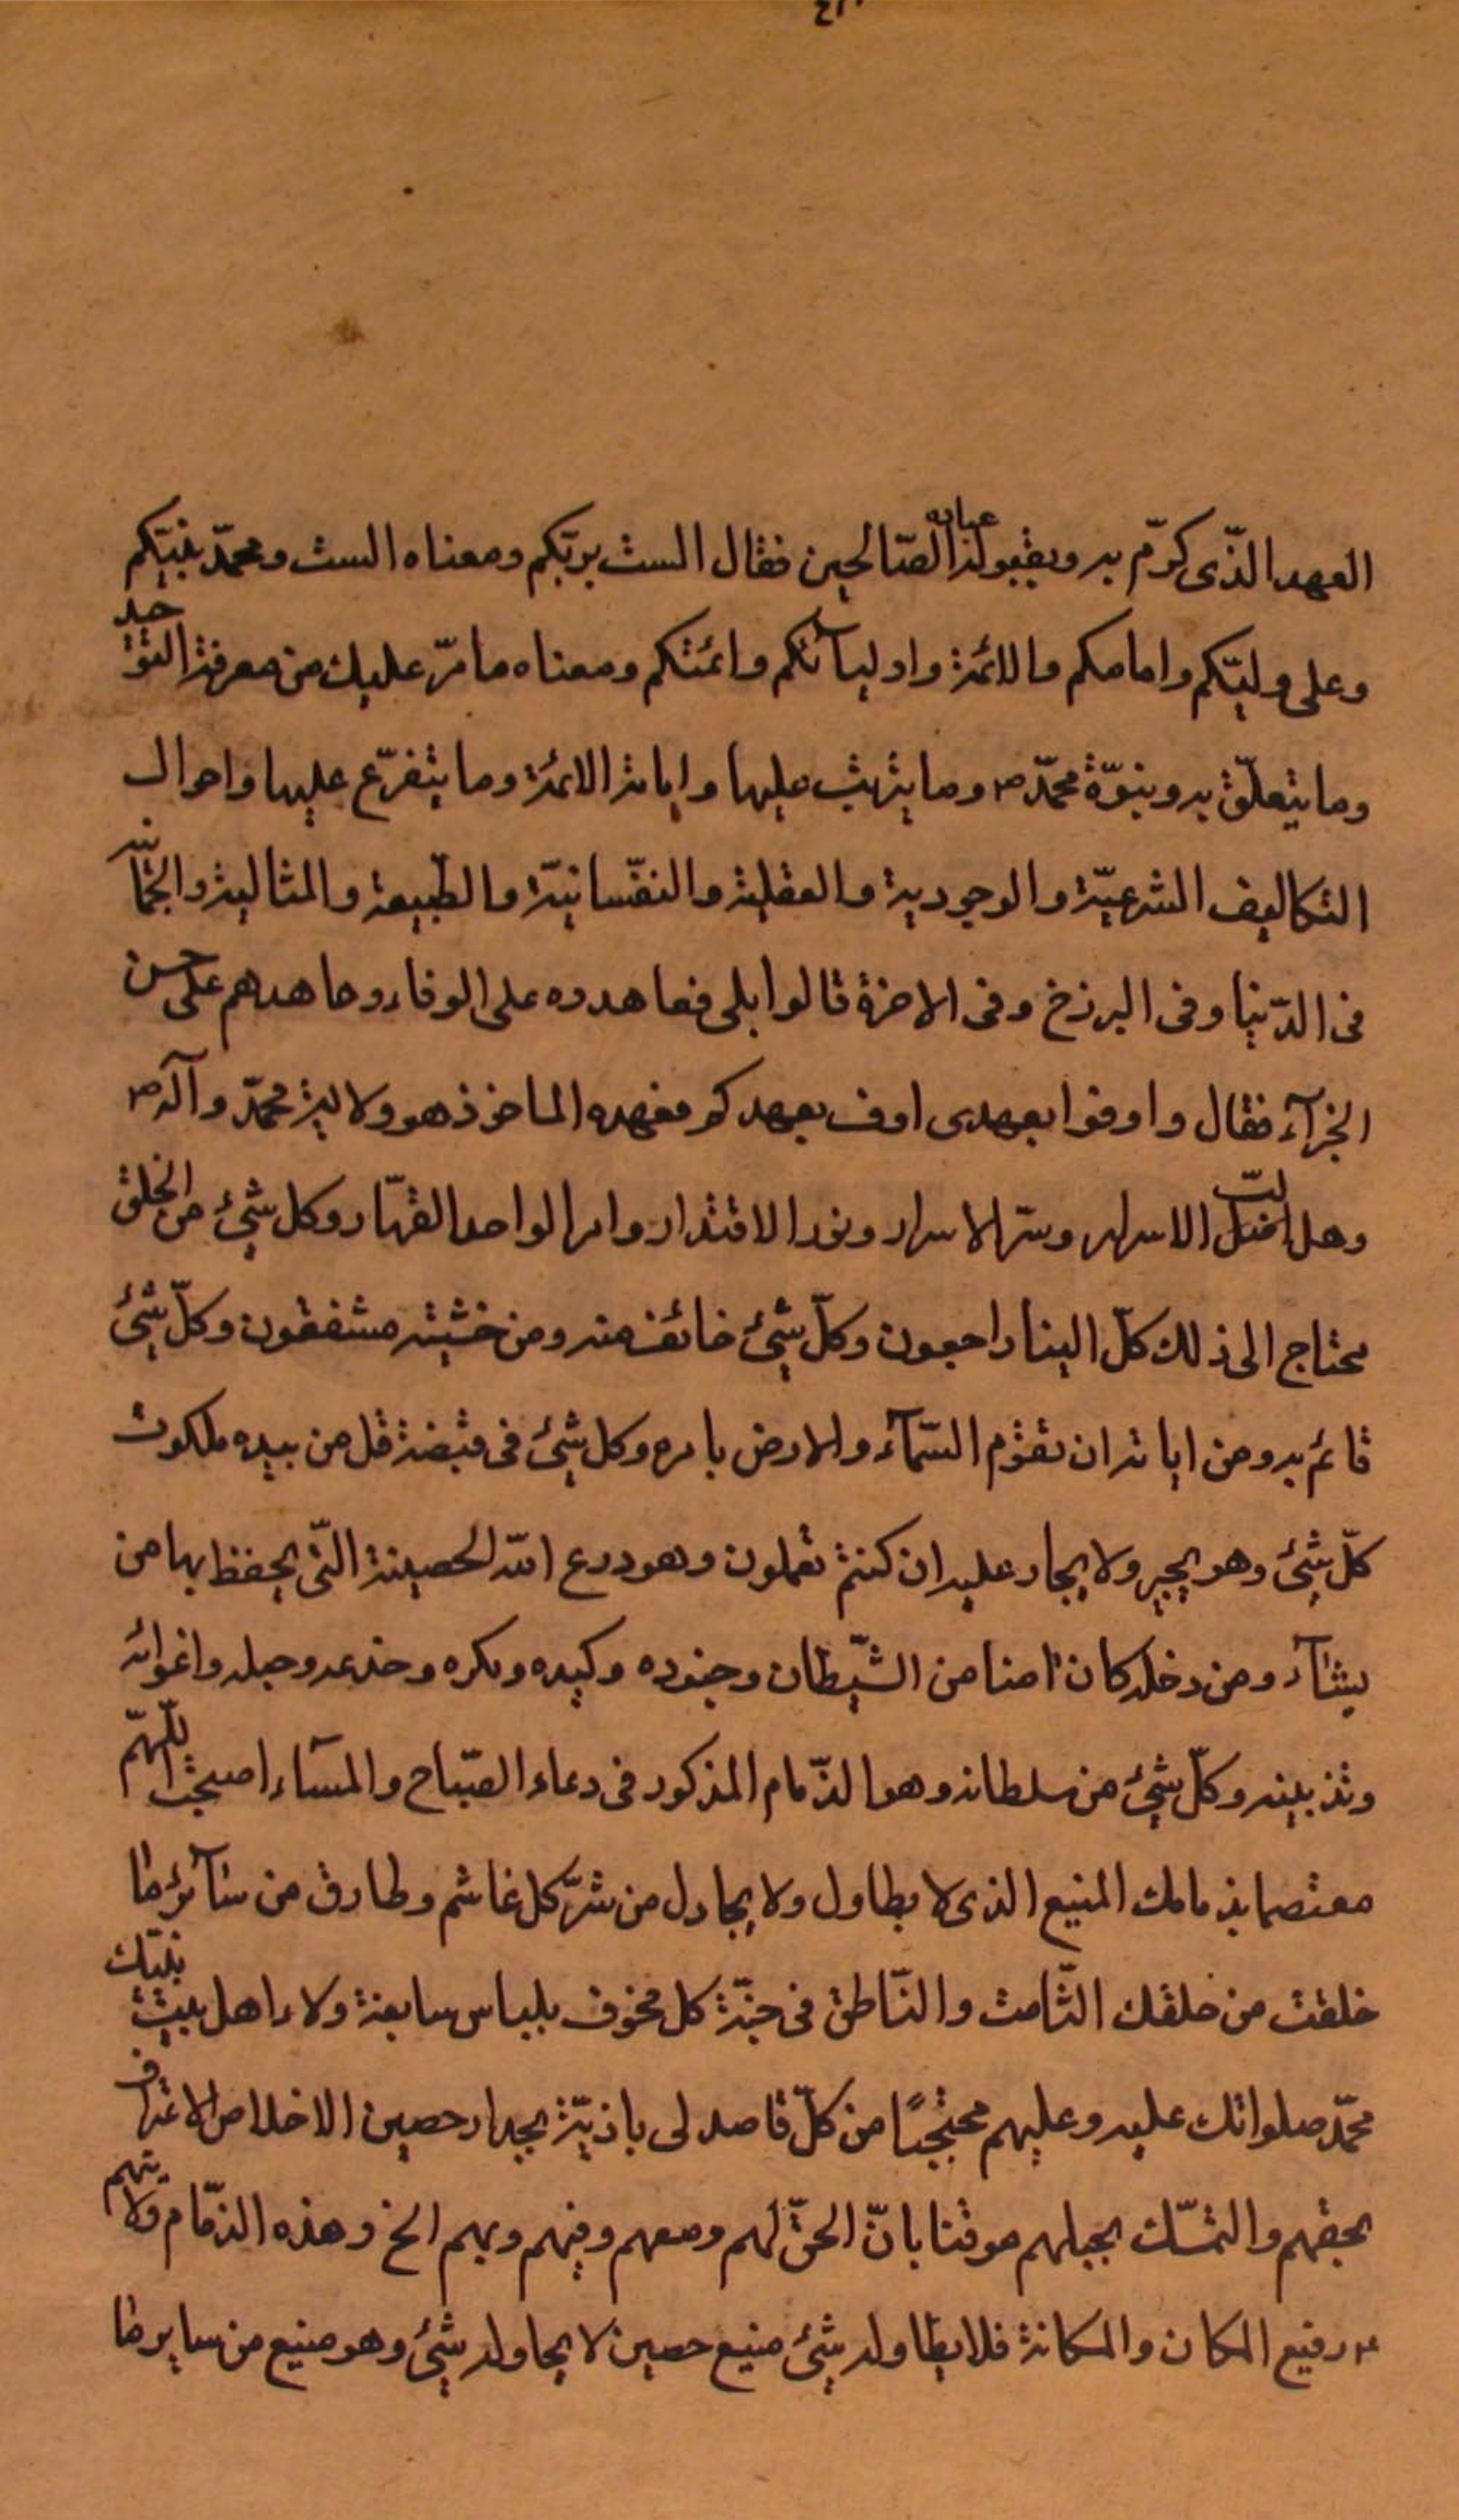 العهد الذّى كرّم به وبقبوله عباده الصّالحين فقال الست بربّكم ومعناه الست ومحمّد بنبيّكم
وعلى وليّكم وامامكم والائمة واوليآئكم وائمتكم ومعناه ما مرّ عليك من معرفة التوحيد
وما يتعلّق به وبنوّة محمّد ص وما يترتب عليها وامامة الائمة وما يتفرّع عليها واحوال
التكاليف الشرعيّة والوجودية والعقلية والنفّسانيّة والطّبيعة والمثالية والجسمانيّة
فى الدّنيا وفى البرزخ وفى الاخرة قالوا بلى فعاهدوه على الوفاء وعاهدهم على حسن
الجزآء فقال واوفوا بعهدى اوف بعهدكم فعهده الماخوذ هو ولاية محمّد وآله ص
الاسرار وسرّ الاسرار ونور الاقتدار وامر الواحد القهّار وكل شيئ من الخلق
محتاج الى ذلك كلّ الينا راجعون وكلّ شيئ خائف منه ومن خشيته مشفقون وكلّ شيئ
قائم به ومن اياته ان تقوم السّمآء والارض بامره وكل شيئ فى قبضة قل من بيده ملكوت
كلّ شيئ وهو يجير ولا يجار عليه ان كنتم تعملون وهو درع الله الحصينة التّى يحفظ بها من
يشآء ومن دخله كان امنا من الشّيطان وجنوده وكيده ومكره وخدعه وحيله واغوائه
وتذبينه وكلّ شيئ من سلطانه وهو الذّمام المذكور فى دعاء الصّباح والمسآء اصبحت اللّهمّ
معتصما بذمامك المنيع الذى لا يطاول ولا يحاول من شرّ كل غاشم وطارق من سآئر ما
خلقت من خلقك الصّامت والنّاطق فى جنّة كل مخوف بلباس سابغة ولاء اهل بيت نبيّك
محمّد صلواتك عليه وعليهم محتجبًا من كلّ قاصد لى باذيّة بجدار حصين الاخلاص الاعتراف
بحقهم والتمسّك بحبلهم موقنا بانّ الحقّ لهم ومعهم وفيهم وبهم الخ وهذه الذّمام ولايتهم
رفيع المكان والمكانة فلا يطاوله شيئ منيع حصين لا يحاوله شيئ وهو منيع من ساير ما